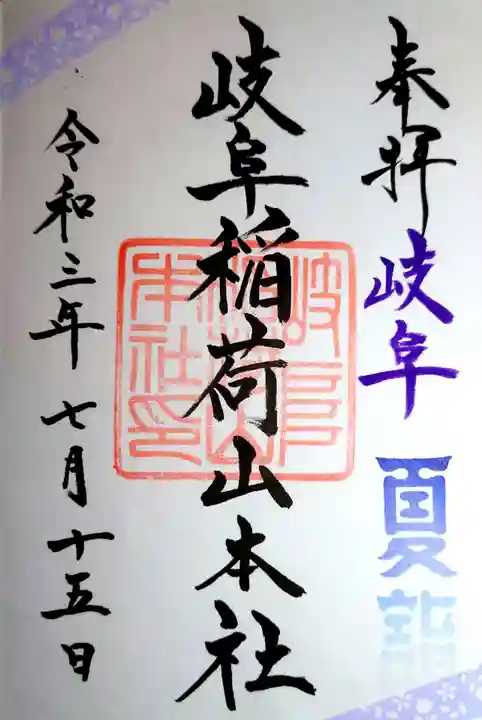 奉拝 岐阜 夏詣
岐阜稲荷山本社
岐阜稲荷山本社印
令和三年七月十五日